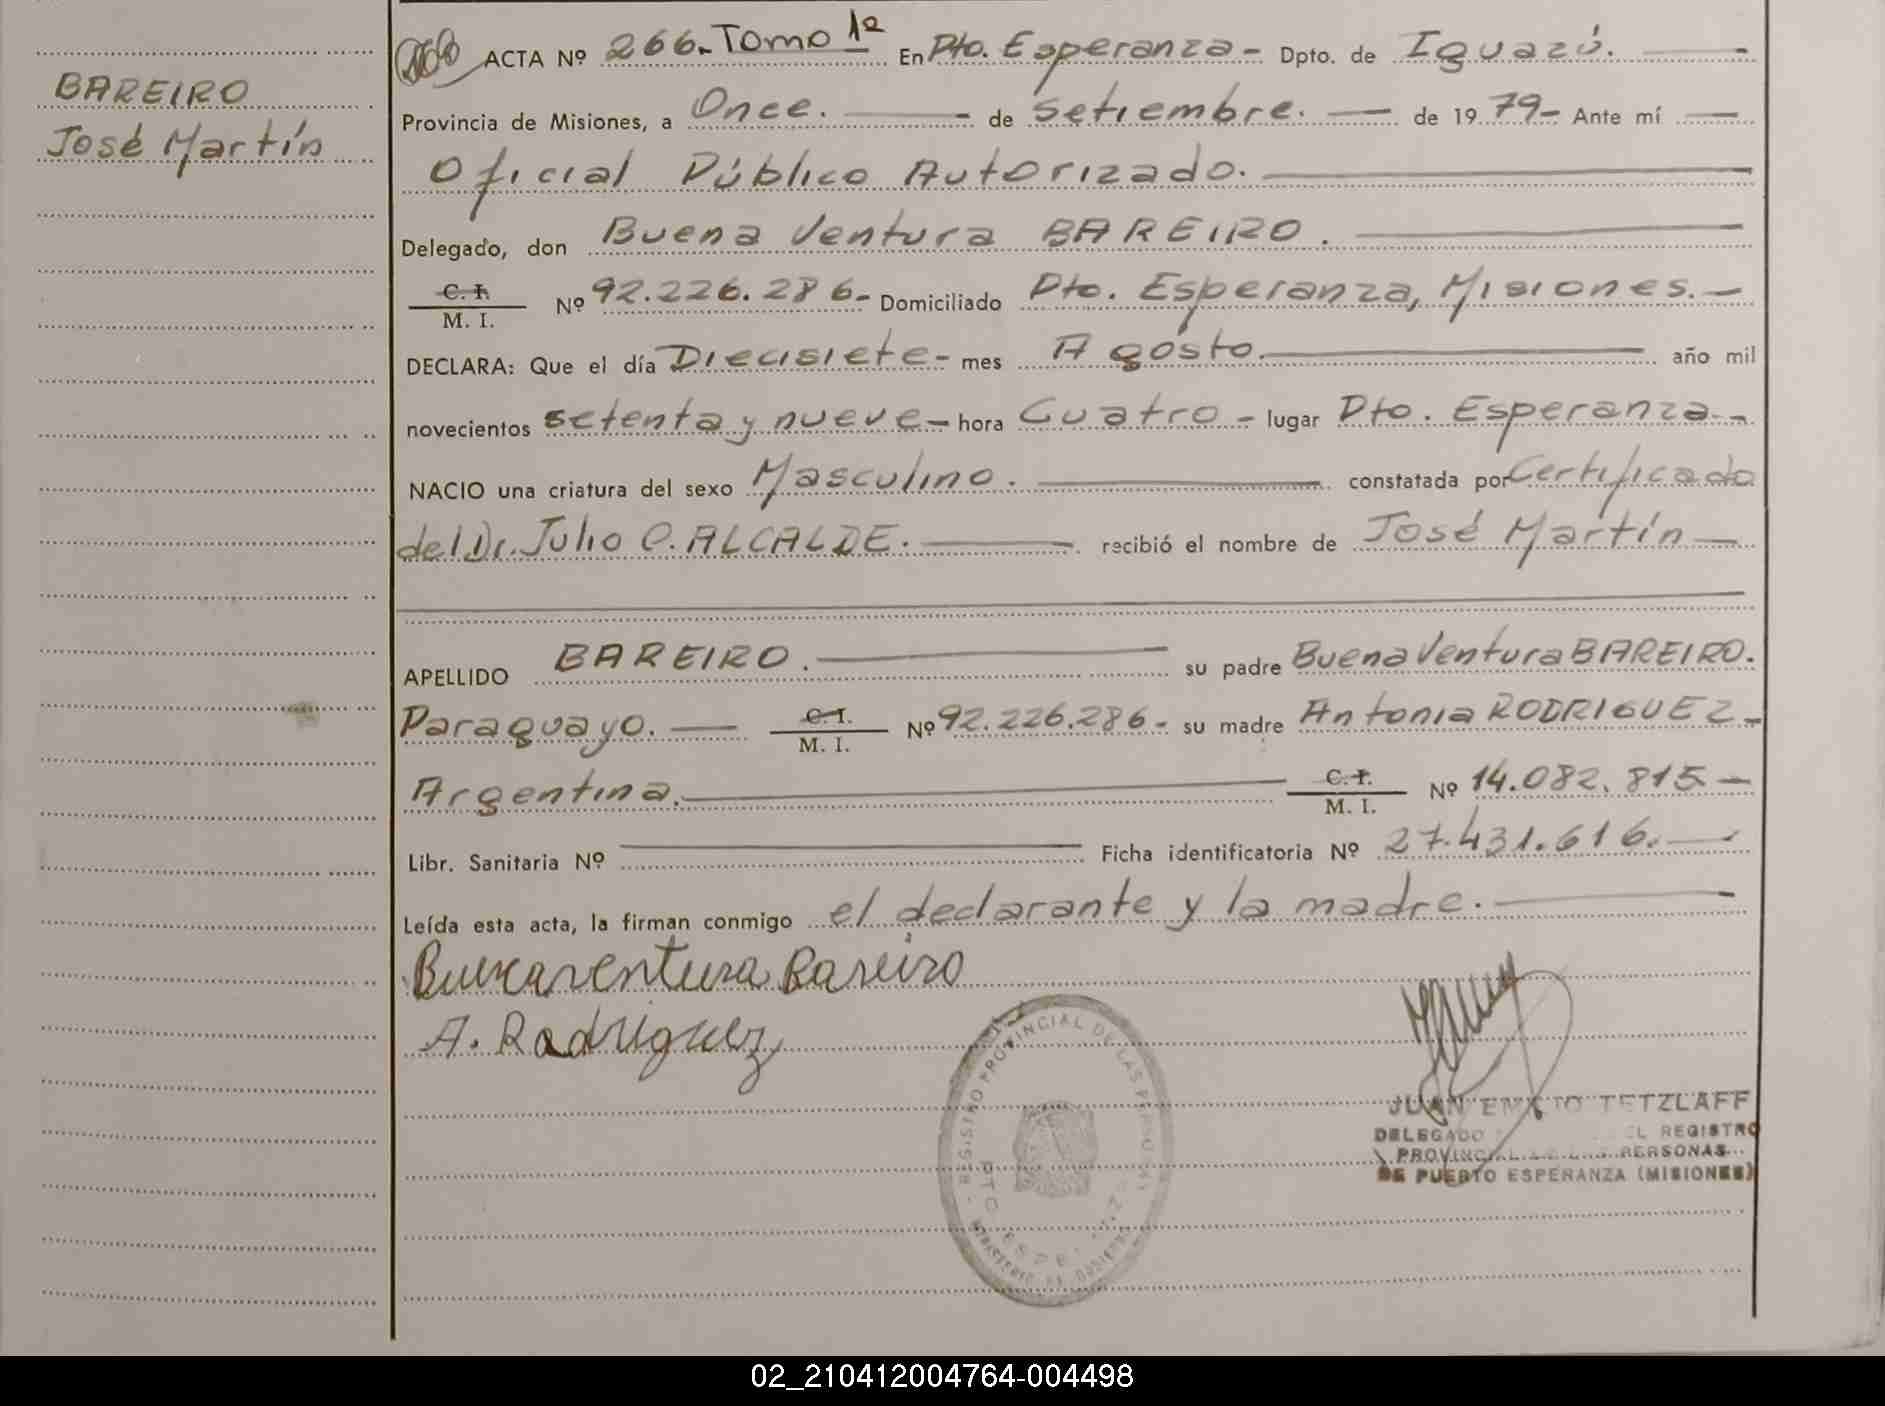 BAREIRO
José Martín
ACTA Nº 266. Tomo 1º En Pto. Esperanza - Dpto. de Iguazú.
Provincia de Misiones, a Once. de Setiembre. de 1979- Ante mí
Oficial Público Autorizado.
Delegado, don Buena Ventura BAREIRO.
C. I. / M. I. Nº 92.226.286- Domiciliado Pto. Esperanza, Misiones.-
DECLARA: Que el día Diecisiete- mes Agosto. año mil
novecientos setenta y nueve- hora Cuatro - lugar Pto. Esperanza.-
NACIO una criatura del sexo Masculino. constatada por Certificado
del Dr. Julio C. ALCALDE. recibió el nombre de José Martín
APELLIDO BAREIRO. su padre Buena Ventura BAREIRO.
Paraguayo. C. I. / M. I. Nº 92.226.286- su madre Antonia RODRIGUEZ-
Argentina. C. I. / M. I. Nº 14.082.815-
Libr. Sanitaria Nº Ficha identificatoria Nº 27.431.616.
Leída esta acta, la firman conmigo el declarante y la madre.
Buenaventura Bareiro
A. Rodriguez
REGISTRO PROVINCIAL DE LAS PERSONAS
JUAN EMILIO TETZLAFF
DELEGADO EL REGISTRO
PROVINCIAL DE LAS PERSONAS
DE PUERTO ESPERANZA (MISIONES)
02_210412004764-004498